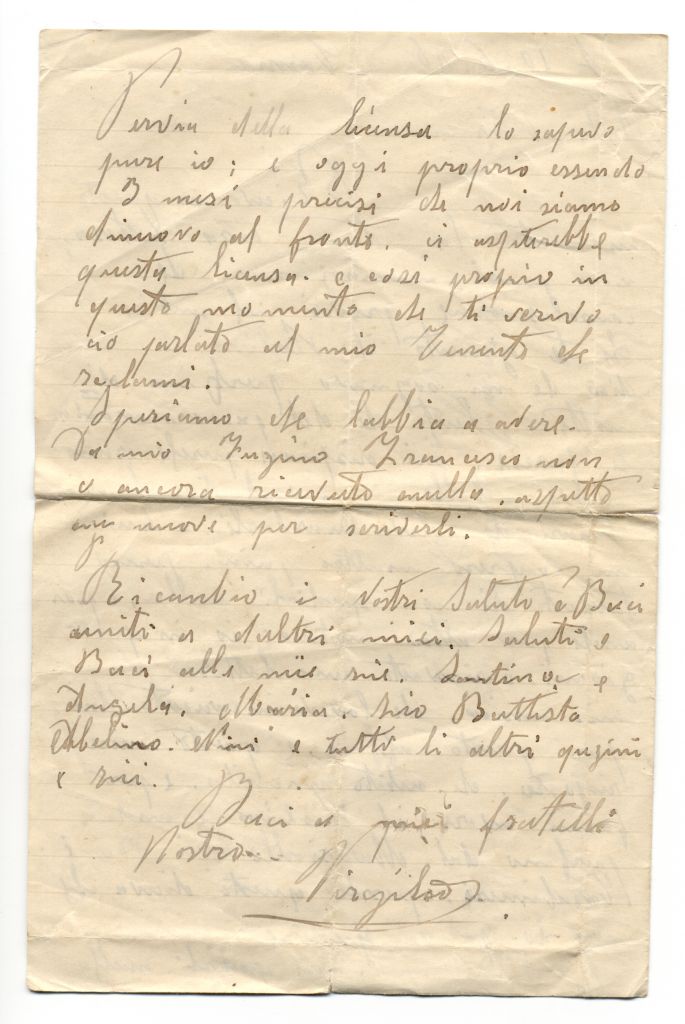 Pervia della licensa lo sapevo
pure io; e oggi proprio essendo
3 mesi precisi che noi siamo
dinuovo al fronte. ci aspeterebbe
questa licensa. e cosi propio in
questo momento che ti scrivo
cio parlato al mio Tenente che
reclami.
Speriamo che labbia a avere.
Da mio Cugino Francesco non
o ancora ricevuto nulla. aspetto
nuove per scriverli.
Ricambio i Vostri Saluto e Baci
uniti a daltri miei. Saluti e
Baci alle mie zie. Santina e
Angela. Maria. zio Battista
Abelino. Nini e tutto li altri qugini
e zii.
Baci a miei fratelli
Vostro.
Virgilio